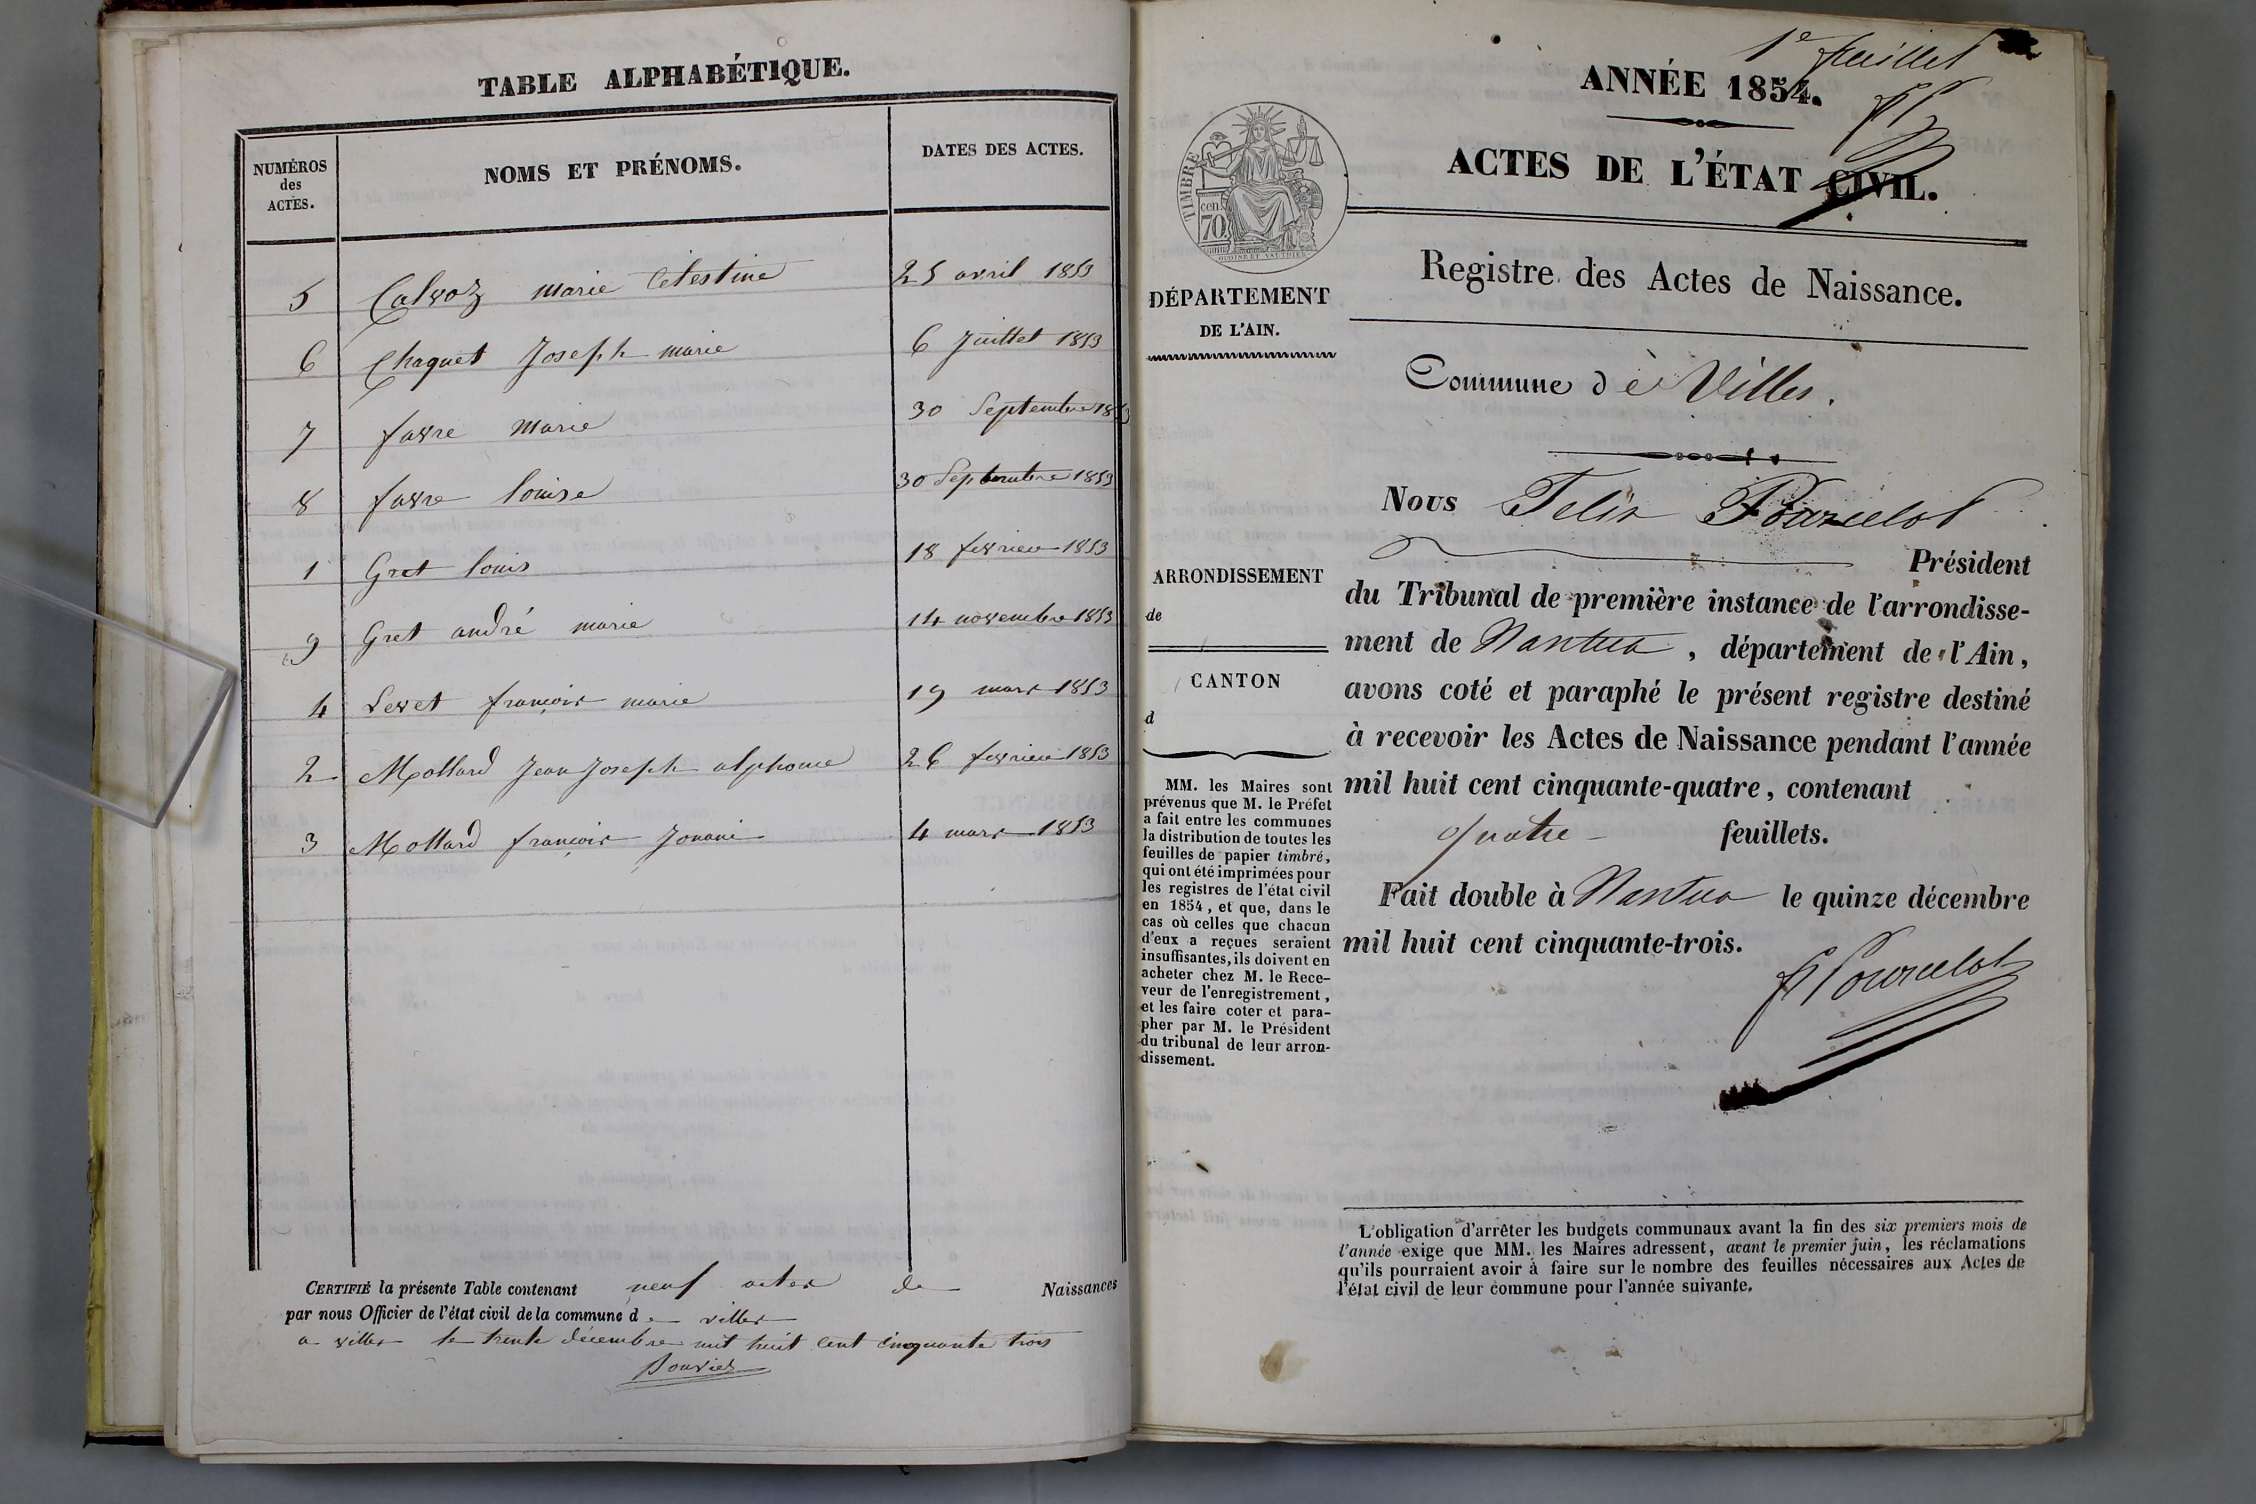 TABLE ALPHABÉTIQUE.
NUMÉROS
des
ACTES.
NOMS ET PRÉNOMS.
DATES DES ACTES.
5 Calvoz marie Celestine 25 avril 1853
6 Chaquet Joseph marie 6 Juillet 1853
7 favre Marie 30 Septembre 1853
8 favre louise 30 Septembre 1853
1 Gret louis 18 fevrier 1853
9 Gret andré marie 14 novembre 1853
4 Levet françois marie 19 mars 1853
2 Mollard Jean Joseph alphonse 26 fevrier 1853
3 Mollard françois 4 mars 1853
CERTIFIÉ la présente Table contenant neuf actes de Naissances
par nous Officier de l'état civil de la commune de villes
a villes le trente décembre mil huit cent cinquante trois
Bouvier
1e feuillet
ANNÉE 1854.
ACTES DE L'ÉTAT CIVIL.
TIMBRE
cen.
70
OUDINE ET VAUTHIER
Registre des Actes de Naissance.
DÉPARTEMENT
DE L'AIN.
Commune de Villes.
Nous Felix Pourcelot
Président
ARRONDISSEMENT
de
CANTON
d
du Tribunal de première instance de l'arrondisse-
ment de Nantua, département de l'Ain,
avons coté et paraphé le présent registre destiné
à recevoir les Actes de Naissance pendant l'année
mil huit cent cinquante-quatre, contenant
quatre feuillets.
Fait double à Nantua le quinze décembre
mil huit cent cinquante-trois.
F Pourcelot
MM. les Maires sont
prévenus que M. le Préfet
a fait entre les communes
la distribution de toutes les
feuilles de papier timbré,
qui ont été imprimées pour
les registres de l'état civil
en 1854, et que, dans le
cas où celles que chacun
d'eux a reçues seraient
insuffisantes, ils doivent en
acheter chez M. le Rece-
veur de l'enregistrement,
et les faire coter et para-
pher par M. le Président
du tribunal de leur arron-
dissement.
L'obligation d'arrêter les budgets communaux avant la fin des six premiers mois de
l'année exige que MM. les Maires adressent, avant le premier juin, les réclamations
qu'ils pourraient avoir à faire sur le nombre des feuilles nécessaires aux Actes de
l'état civil de leur commune pour l'année suivante.